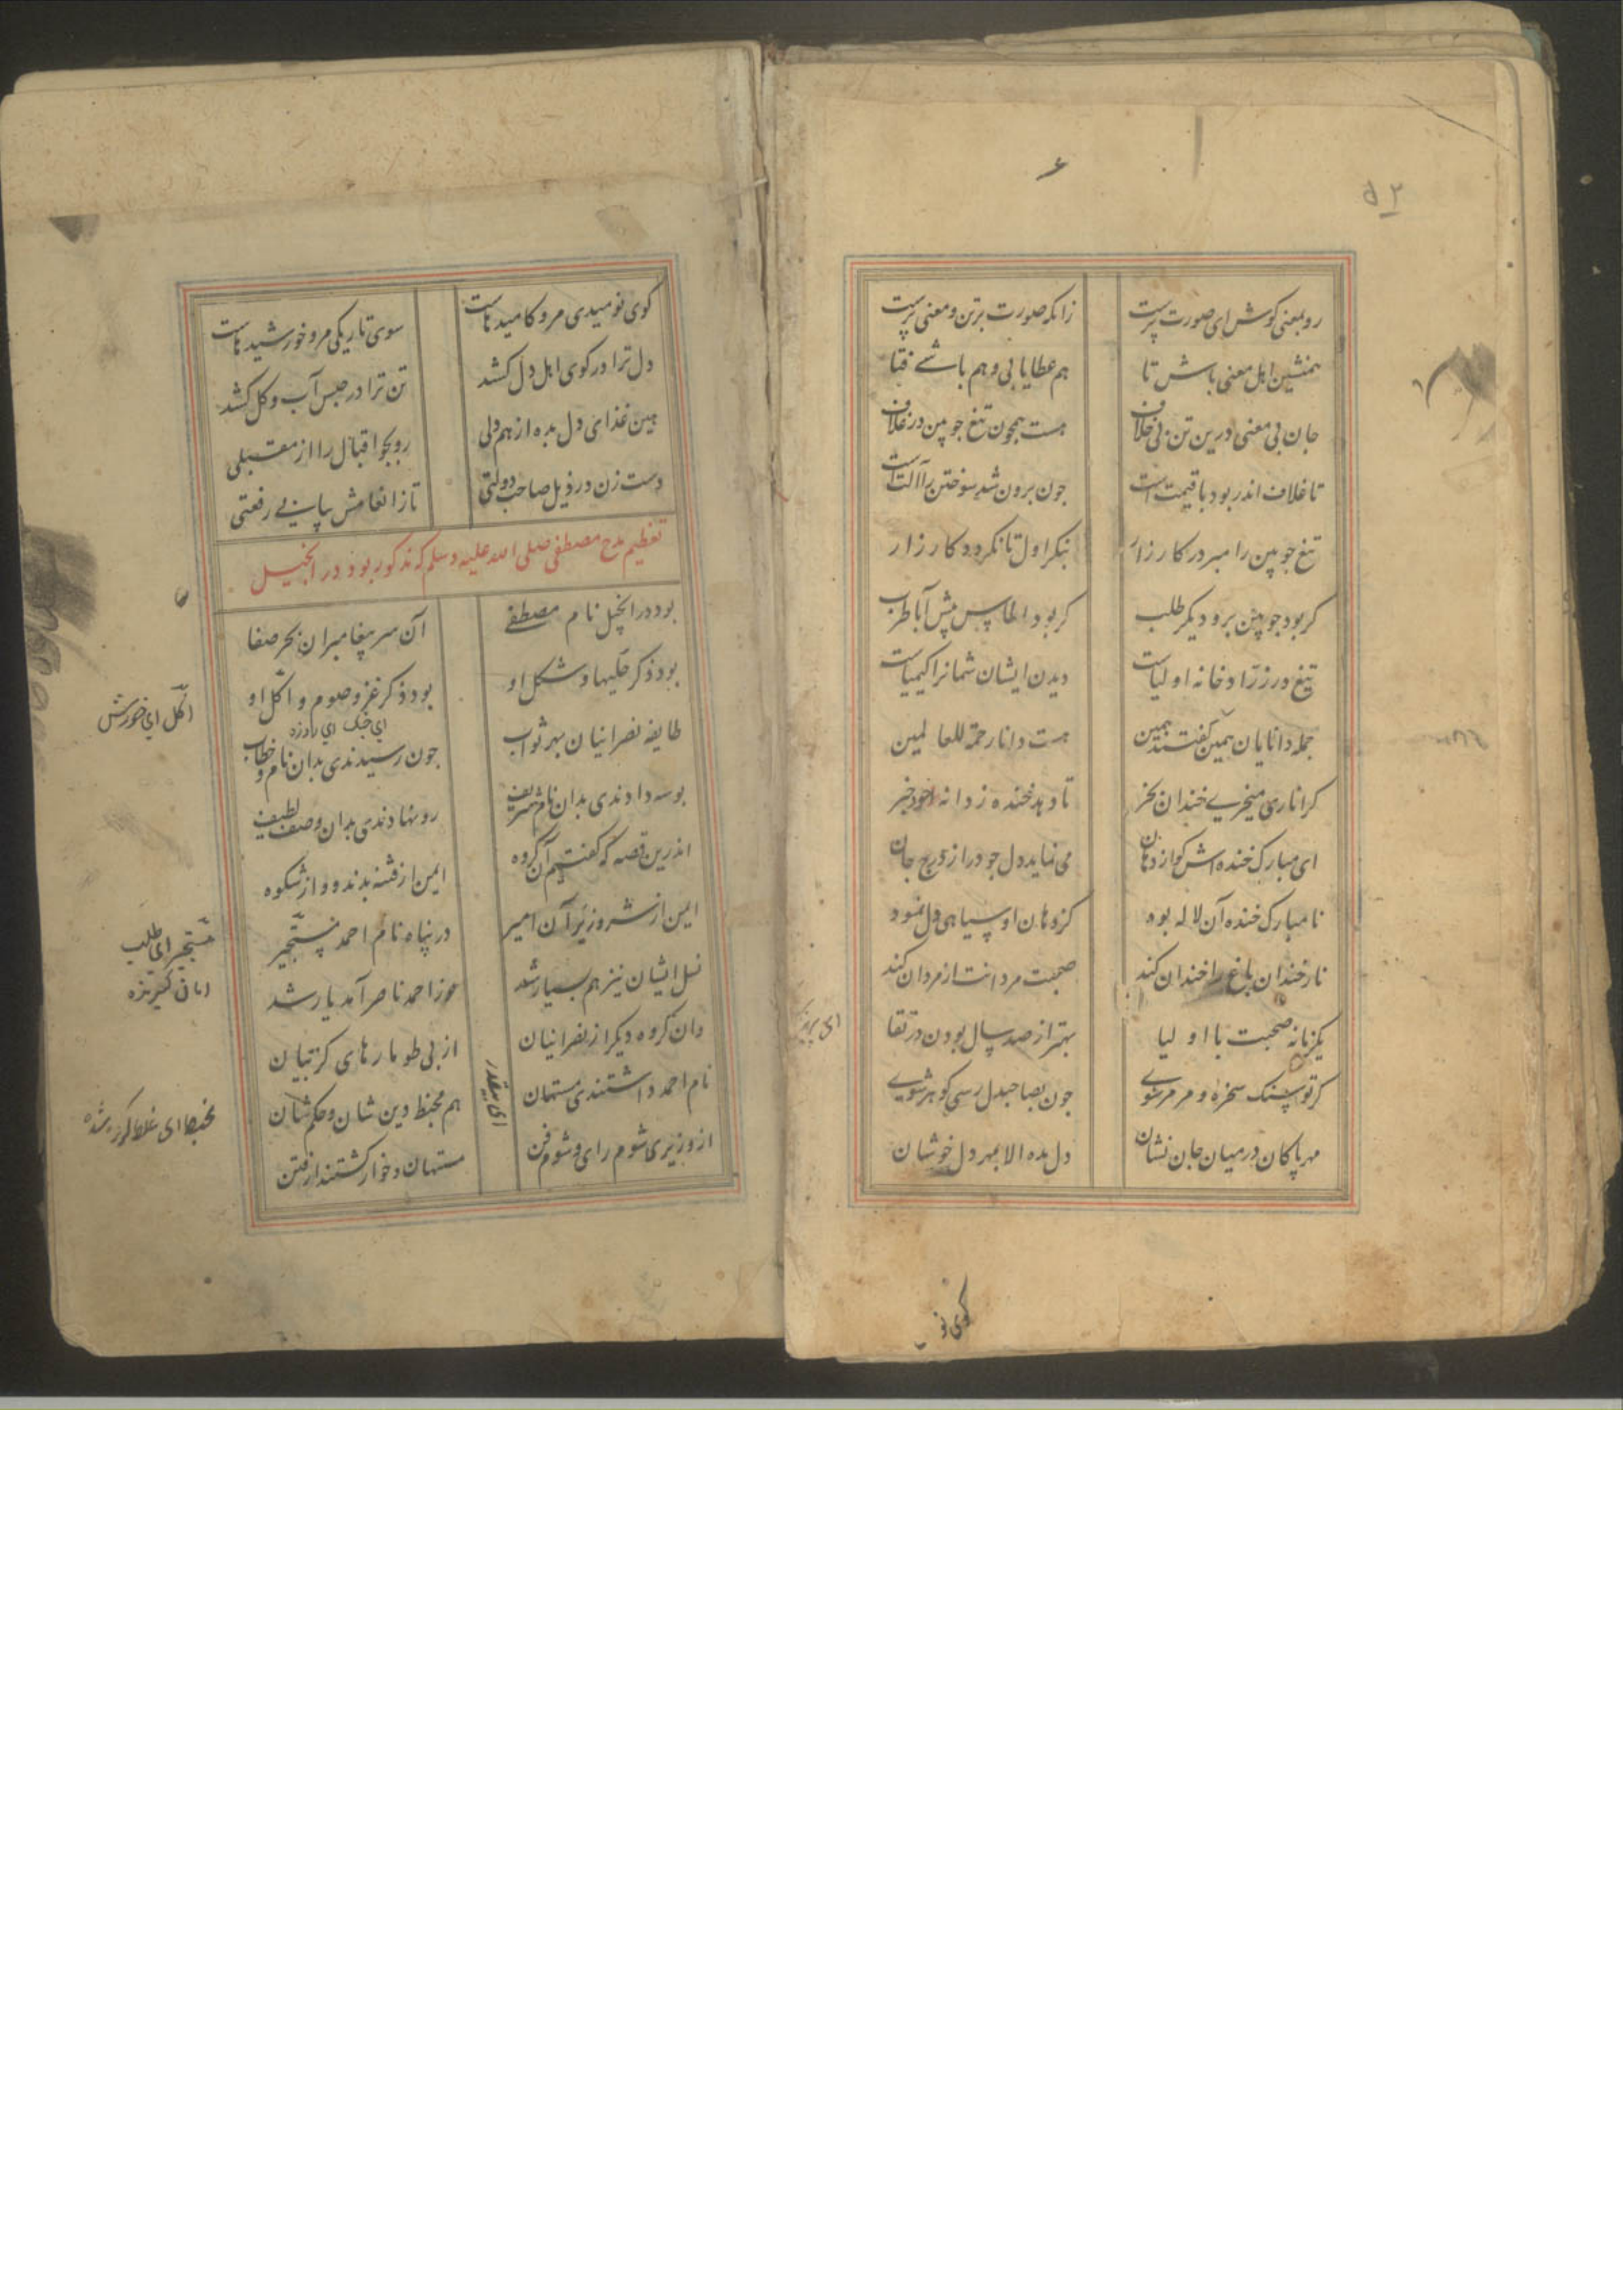 ۵۲
رو بمعنی کوش ای صورت پرست زانکه صورت برتن و معنی پرست
همنشین اهل معنی باش تا هم عطا یابی و هم باشی فتا
جان بی معنی درین تن بی خلاف هست همچون تیغ جوبین در غلاف
تا غلاف اندر بود با قیمت است جون برون شد سوختن را آلت است
تیغ جوبین را مبر در کارزار بنکر اول تا نکردد کار زار
کر بود جوبین برو دیکر طلب کر بود الماس پیش آ با طرب
تیغ در زرادخانه اولیاست دیدن ایشان شمارا کیمیاست
جمله دانایان همین کفتند همین هست دانا رحمة للعالمین
کر اناری میخری خندان بخر تا دهد خنده ز دانه او خبر
ای مبارک خنده اش کو از دهان می نماید دل جو در از درج جان
نامبارک خنده آن لاله بود کز دهان او سیاهی دل نمود
نار خندان باغ را خندان کند صحبت مردانت از مردان کند
یکزمانه صحبت با اولیا بهتر از صد سال بودن در تقا
کر تو سنک سخره و مرمر شوی جون بصاحبدل رسی کوهر شوی
مهر پاکان در میان جان نشان دل مده الا بمهر دل خوشان
کوی نو
کوی نومیدی مرو کامیدهاست سوی تاریکی مرو خورشیدهاست
دل ترا در کوی اهل دل کشد تن ترا در حبس آب و کل کشد
هین غذای دل بده از همدلی رو بجو اقبال را از مقبلی
دست زن در ذیل صاحب دولتی تا ز انعامش بیابی رفعتی
تعظیم مدح مصطفی صلی الله علیه وسلم که مذکور بود در انجیل
بود در انجیل نام مصطفی آن سر پیغامبران بحر صفا
بود ذکر حلیها و شکل او بود ذکر غزو و صوم و اکل او
ای جنک ای روزه
اکل ای خورش
طایفه نصرانیان بهر ثواب جون رسیدندی بدان نام و خطاب
بوسه دادندی بدان نام شریف رو نهادندی بدان وصف لطیف
اندرین قصه که کفتیم آن کروه ایمن از فتنه بدند و از شکوه
ایمن از شر وزیر آن امیر در پناه نام احمد مستجیر
مستجیر ای طالب
امان کیرنده
نسل ایشان نیز هم بسیار شد نور احمد ناصر آمد یار شد
وان کروه دیکر از نصرانیان از پی طومارهای کژ بیان
نام احمد داشتندی مستهان هم مخبط دین شان و حکم شان
ای بیقدر
مخبط ای غلط کرده شده
از وزیری شوم رای و شوم فن مستهان و خوار کشتند از فتن